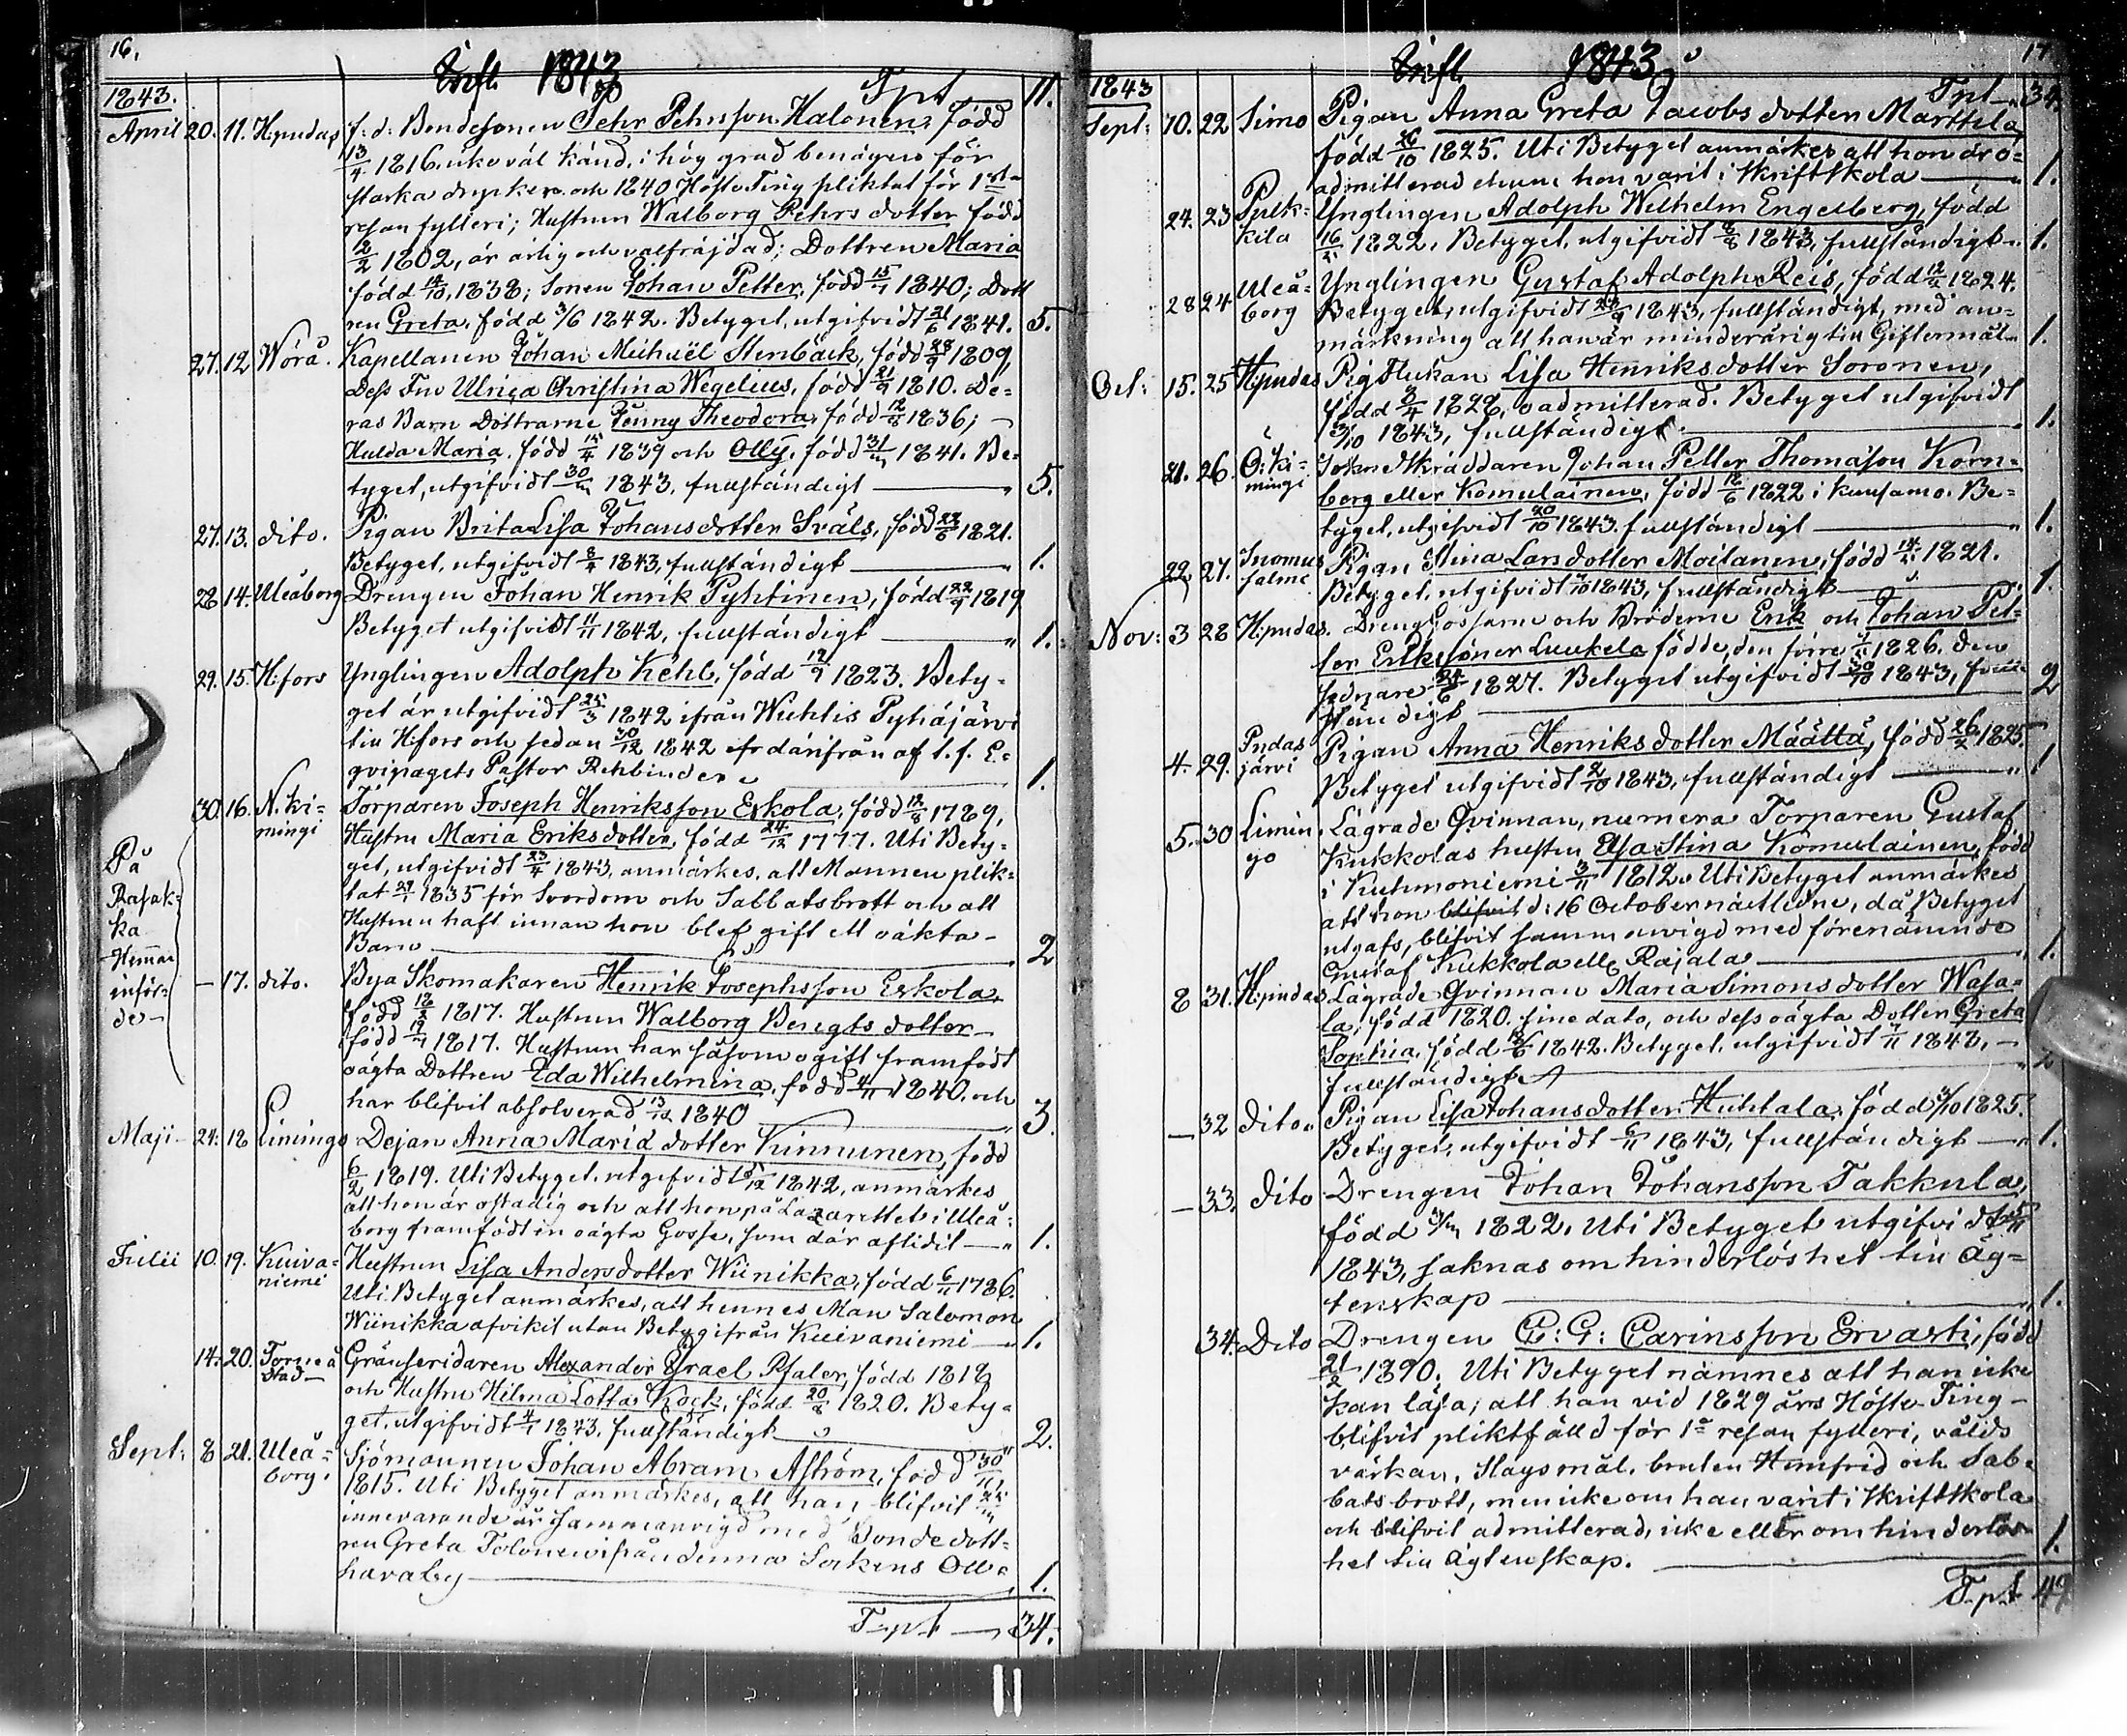 16.
Infl. 1843
1843. Tpt 11.
April 20. 11. H:pudas f: d: Bondesonen Pehr Pehrsson Halonen, född
13/4 1816. icke väl känd, i hög grad benägen för
starka drycker och 1840 Höste Ting pliktat för 1sta
resan fylleri; Hustrun Walborg Pehrs dotter född
2/2 1802, är ärlig och välfräjdad; Dottren Maria
född 12/10 1838; Sonen Johan Petter, född 15/7 1840; Dott
ren Greta, född 3/6 1842. Betyget, utgifvidt 21/6 1841. 5.
27. 12 Wörå. Kapellanen Johan Michaël Stenbäck, född 28/9 1809,
Dess Fru Ulrica Christina Wegelius, född 21/9 1810. De-
ras Barn Döttrarne Fenny Theodora, född 12/8 1836;
Hulda Maria, född 15/4 1839 och Olly, född 31/m 1841. Be-
tyget, utgifvidt 30/m 1843, fullständigt 5.
27. 13. dito. Pigan Brita Lisa Johansdotter Sväls, född 22/6 1821.
Betyget, utgifvidt 8/4 1843, fullständigt 1.
28 14. Uleåborg Drengen Johan Henrik Pyhtinen, född 22/9 1819
Betyget utgifvidt 11/11 1842, fullständigt 1.
29. 15. H:fors Ynglingen Adolph Kéhl, född 12/9 1823. Bety-
get är utgifvidt 25/3 1842 ifrån Wichtis Pyhäjärvi
till H:fors och sedan 30/12 1842 därifrån af t. f. E-
qvipagets Pastor Rehbinder 1.
30. 16. N. ki-
mingi Torparen Joseph Henriksson Eskola, född 12/8 1789,
Hustru Maria Eriksdotter, född 24/12 1777. Uti Bety-
get, utgifvidt 23/4 1843, anmärkes, att Mannen plik-
tat 27/1 1835 för Svordom och Sabbatsbrott och att
Hustrun haft innan hon blef gift ett oäkta
Barn 2
På
Rasak-
ka
Hemman
inför-
de
– 17. dito. Bya Skomakaren Henrik Josephsson Eskola,
född 18/2 1817. Hustrun Walborg Bengts dotter
född 19/7 1817. Hustrun har såsom ogift framfödt
oägta Dottren Eda Wilhelmina, född 4/11 1840. och
har blifvit absolverad 13/12 1840 3.
Maji 24. 18 Liminga Dejan Anna Maria dotter Kinnunen, född
6/2 1819. Uti Betyget, utgifvidt 5/12 1842, anmärkes
att hon är ostadig och att hon på Lazarettet i Uleå-
borg framfödt en oägta Gosse, som där aflidit 1.
Julii 10. 19. Kuiva-
niemi Hustrun Lisa Andersdotter Wiinikka, född 6/11 1786.
Uti Betyget anmärkes, att hennes Man Salomon
Wiinikka afvikit utan Betyg ifrån Kuivaniemi 1.
14. 20. Torneå
Stad Gränseridaren Alexander Israel Psaler, född 1818
och Hustru Hilma Lotta Kock, född 20/8 1820. Bety-
get, utgifvidt 4/7 1843, fullständigt 2.
Sept: 8 21. Uleå-
borg. Sjömannen Johan Abram Aström, född 30/11
1815. Uti Betyget anmärkes, att han blifvit 25/m
innevarande år sammanvigd med Bondedott-
ren Greta Tolonen ifrån denna Sockens Olla
havaby 1.
Tpt 34.
17
Infl. 1843
1843 Tpt 34.
Sept: 10. 22 Simo Pigan Anna Greta Jacobs dotter Marttila
född 26/10 1825. Uti Betyget anmärkes att hon är o-
admitterad ehuru hon varit i Skriftskola 1.
24. 23 Pulk-
kila Ynglingen Adolph Wilhelm Engelberg, född
16/11 1822. Betyget, utgifvidt 8/8 1843, fullständigt 1.
28 24 Uleå-
borg Ynglingen Gustaf Adolph Reis, född 12/2 1824.
Betyget, utgifvidt 23/9 1843, fullständigt, med an-
märkning att han är minderårig till Giftermål 1.
Oct: 15. 25 H:pudas Pig Flickan Lisa Henriksdotter Soronen,
född 8/4 1828, oadmitterad. Betyget utgifvidt
3/10 1843, fullständigt. 1.
21. 26. Ö: ki-
mingi Sockneskräddaren Johan Petter Thomasson Korn-
berg eller Komulainen, född 12/6 1822 i Kuusamo. Be-
tyget, utgifvidt 20/10 1843. fullständigt 1.
22 27. Suomus
salmi Pigan Stina Larsdotter Moilanen, född 14/11 1821.
Betyget, utgifvidt 1/10 1843, fullständigt 1.
Nov: 3 28 H:pudas. Drenggossarne och Bröderne Erik och Johan Pet-
ter Erikssöner Luukela födde, den förre 4/11 1826. den
sednare 24/6 1827. Betyget utgifvidt 30/10 1843, full-
ständigt 2
4. 29. Pudas
järvi Pigan Anna Henriks dotter Määttä, född 26/2 1825.
Betyget utgifvidt 2/10 1843, fullständigt 1
5. 30 Limin
go Lägrade Qvinnan, numera Torparen Gustaf
Kukkolas hustru Elsa Stina Komulainen, född
i Kuhmoniemi 3/11 1812. Uti Betyget anmärkes
att hon blifvit d: 16 October näst ledne, då Betyget
utgafs, blifvit sammanvigd med förenämnde
Gustaf Kukkola elle Rajala 1.
8 31. H:pudas Lägrade Qvinnan Maria Simons dotter Wasa-
la, född 1820. sine dato, och dess oägta Dotter Greta
Sophia, född 12/6 1842. Betyget, utgifvidt 7/11 1843,
fullständigt 2
– 32 dito Pigan Lisa Johansdotter Huhtala, född 3/10 1825.
Betyget, utgifvidt 6/11 1843, fullständigt 1.
– 33. dito Drengen Johan Johansson Takkula,
född 1822. Uti Betyget utgifvidt 5/11
1843, saknas om hinderlöshet till äg-
tenskap 1.
34. Dito Drengen C: G: Carinsson Ervasti, född
21/2 1890. Uti Betyget nämnes att han icke
kan läsa; att han vid 1829 års Höste Ting
blifvit pliktfälld för 1a resan fylleri, vålds
värkan, Slagsmål, bruten Hemfrid och Sab-
bats brott, men icke om han varit i Skriftskola
och blifvit admitterad, icke eller om hinderlös-
het till ägtenskap. 1.
Tpt 49